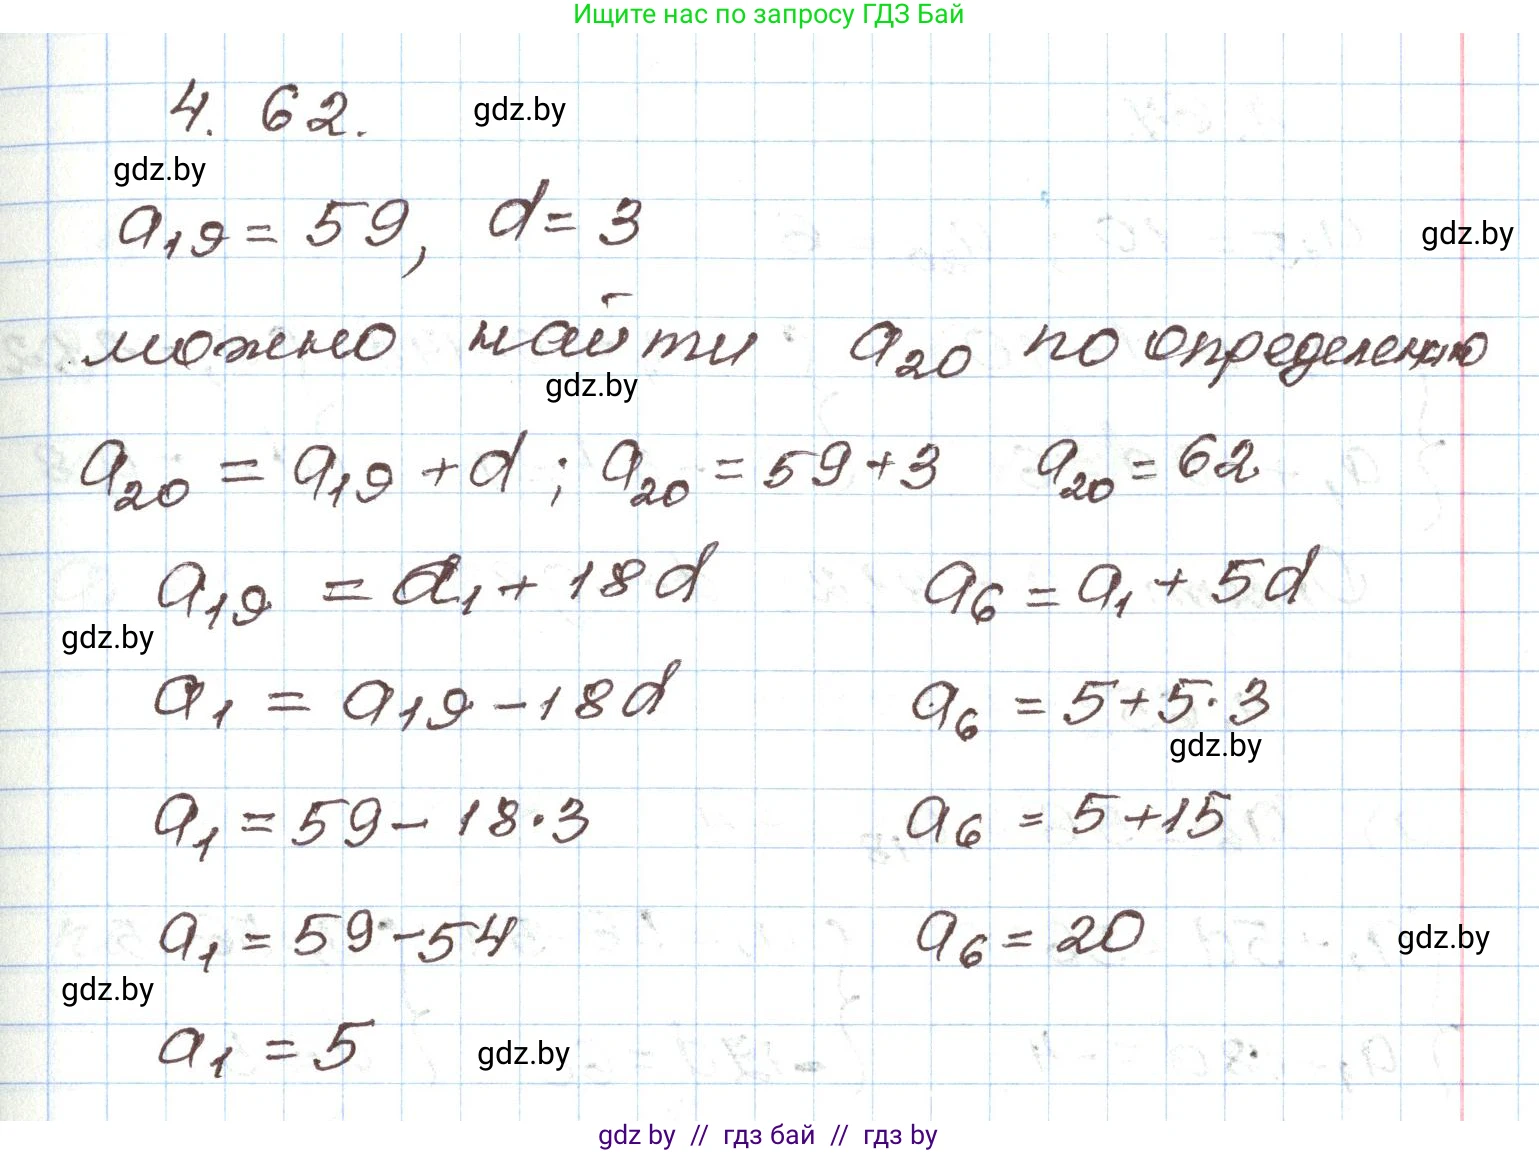 Ищите нас по запросу ГДЗ Бай
4. 62. gdz.by
gdz.by
a₁₉ = 59, d = 3
gdz.by
можно найти a₂₀ по определению
gdz.by
a₂₀ = a₁₉ + d ; a₂₀ = 59 + 3 a₂₀ = 62
a₁₉ = a₁ + 18d a₆ = a₁ + 5d
gdz.by
a₁ = a₁₉ - 18d a₆ = 5 + 5·3
gdz.by
a₁ = 59 - 18·3 a₆ = 5 + 15
a₁ = 59 - 54 a₆ = 20 gdz.by
gdz.by
a₁ = 5 gdz.by
gdz by // гдз бай // гдз by